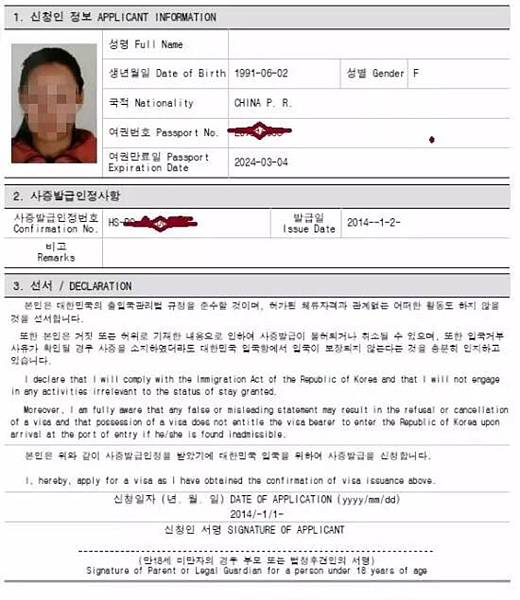 1. 신청인 정보 APPLICANT INFORMATION
성명 Full Name
생년월일 Date of Birth 1991-06-02 성별 Gender F
국적 Nationality CHINA P. R.
여권번호 Passport No.
여권만료일 Passport Expiration Date 2024-03-04
2. 사증발급인정사항
사증발급인정번호 Confirmation No. HS- 발급일 Issue Date 2014--1-2-
비고 Remarks
3. 선서 / DECLARATION
본인은 대한민국의 출입국관리법 규정을 준수할 것이며, 허가된 체류자격과 관계없는 어떠한 활동도 하지 않을
것을 선서합니다.
또한 본인은 거짓 또는 허위로 기재한 내용으로 인하여 사증발급이 불허되거나 취소될 수 있으며, 또한 입국거부
사유가 확인될 경우 사증을 소지하였더라도 대한민국 입국항에서 입국이 보장되지 않는다는 것을 충분히 인지하고
있습니다.
I declare that I will comply with the Immigration Act of the Republic of Korea and that I will not engage
in any activities irrelevant to the status of stay granted.
Moreover, I am fully aware that any false or misleading statement may result in the refusal or cancellation
of a visa and that possession of a visa does not entitle the visa bearer to enter the Republic of Korea upon
arrival at the port of entry if he/she is found inadmissible.
본인은 위와 같이 사증발급인정을 받았기에 대한민국 입국을 위하여 사증발급을 신청합니다.
I, hereby, apply for a visa as I have obtained the confirmation of visa issuance above.
신청일자 (년. 월. 일) DATE OF APPLICATION (yyyy/mm/dd)
2014/-1/1-
신청인 서명 SIGNATURE OF APPLICANT
(만18세 미만자의 경우 부모 또는 법정후견인의 서명)
Signature of Parent or Legal Guardian for a person under 18 years of age